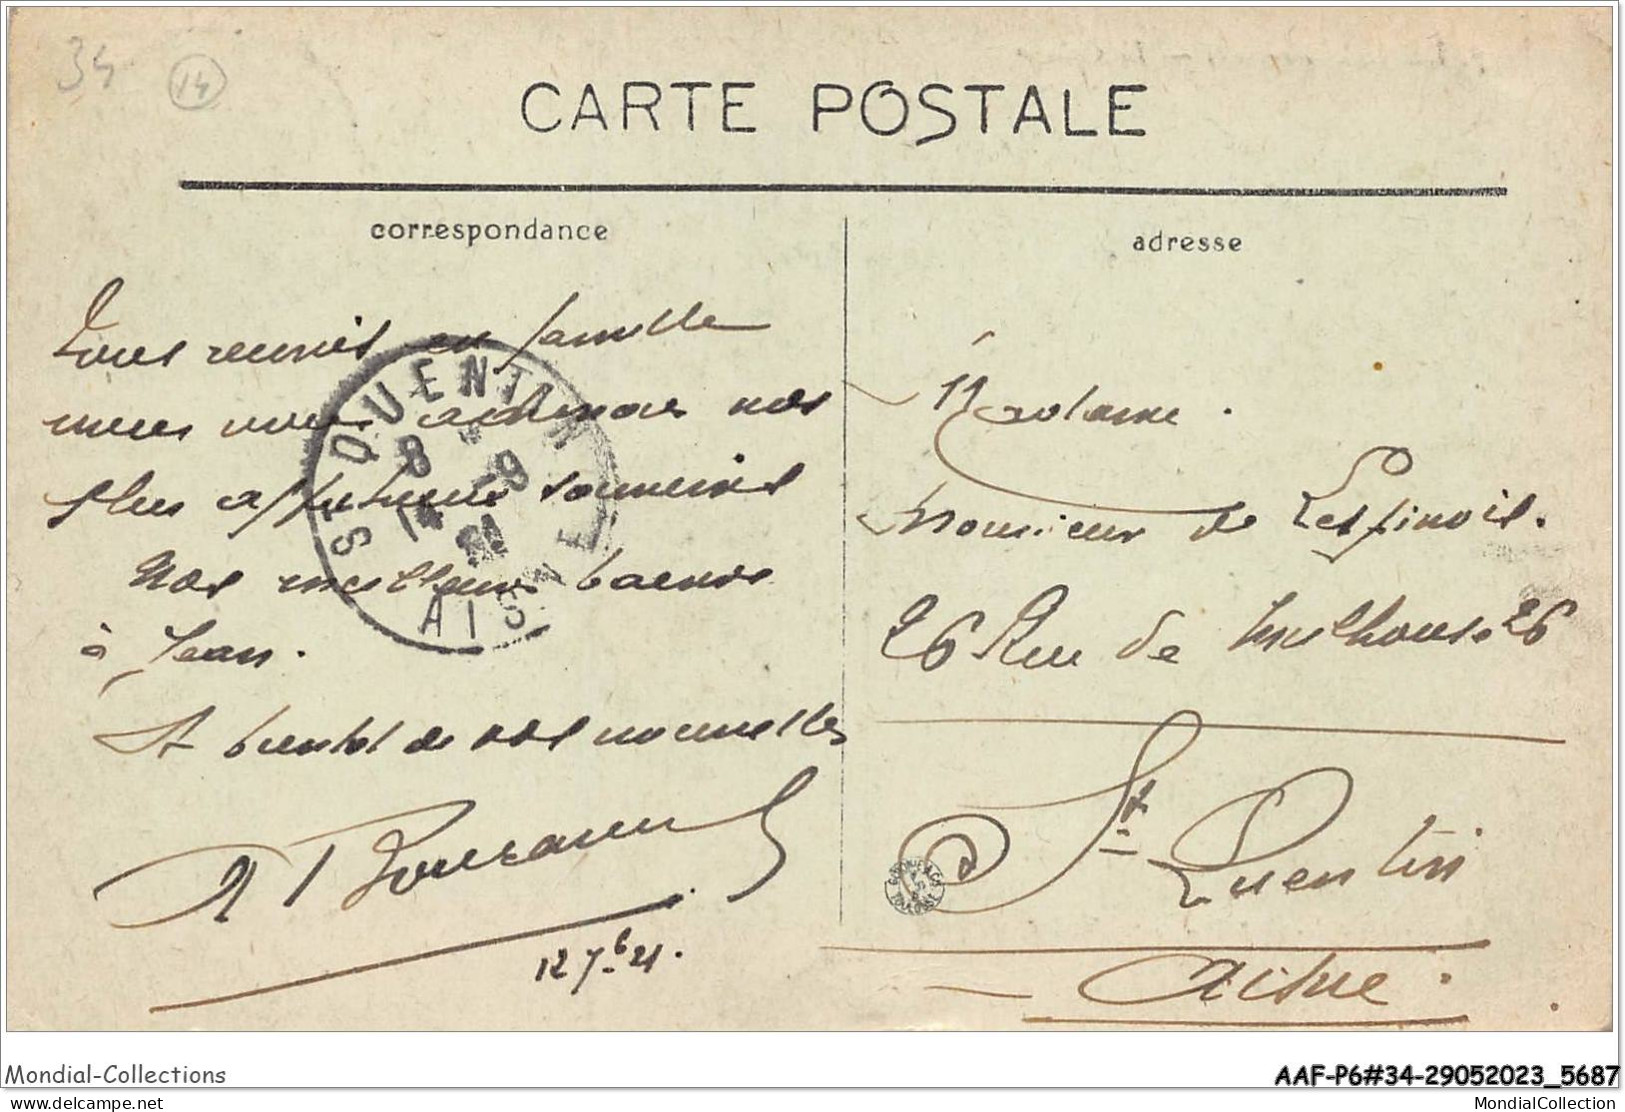 34
14
CARTE POSTALE
correspondance
adresse
Tous reunis en famille
nous vous adressons nos
plus affectueux souvenirs
Nos meilleurs baisers
à Jean.
A bientot de vos nouvelles
12 7b 21.
ST QUENTIN
8
14 - 9
21
AISNE
Madame.
Monsieur de Lespinois.
26 Rue de Mulhouse 26
St Quentin
Aisne.
Mondial-Collections
AAF-P6#34-29052023_5687
delcampe.net
MondialCollection